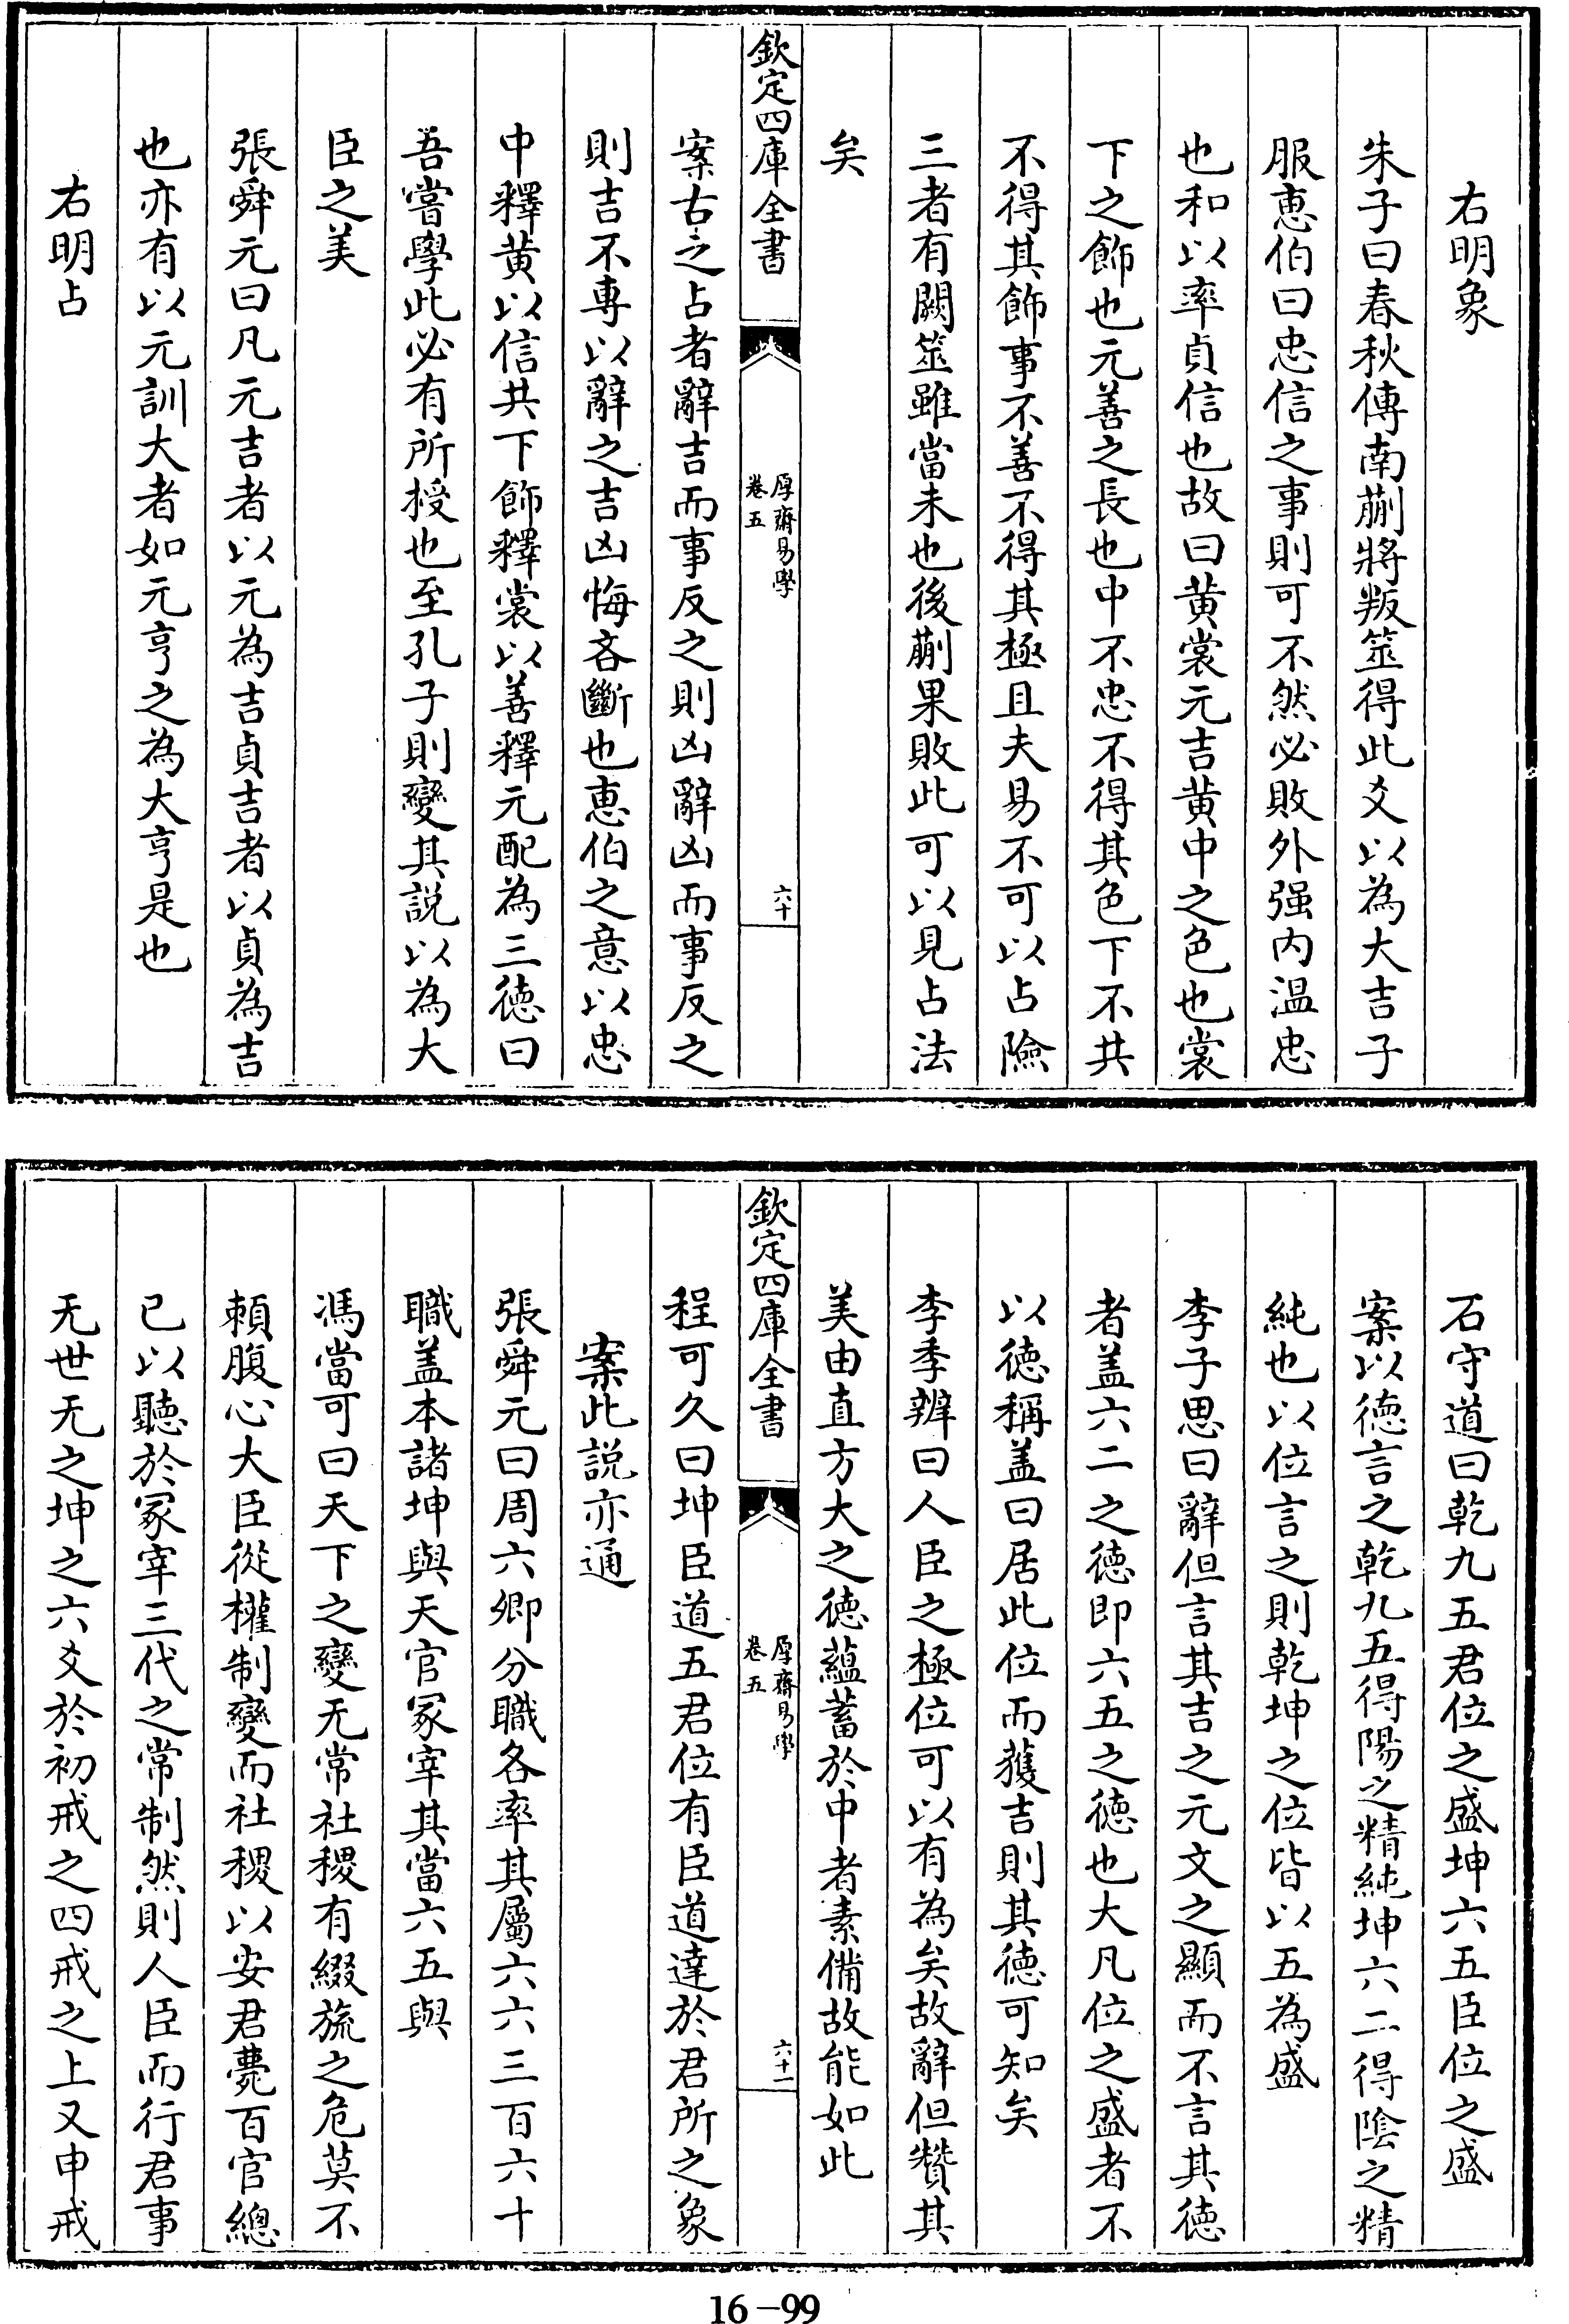 右明象
朱子曰春秋傳南蒯將叛筮得此爻以為大吉子
服惠伯曰忠信之事則可不然必敗外强内温忠
也和以率貞信也故曰黄裳元吉黄中之色也裳
下之飾也元善之長也中不忠不得其色下不共
不得其飾事不善不得其極且夫易不可以占險
三者有闕筮雖當未也後蒯果敗此可以見占法
矣
欽定四庫全書
厚齋易學
卷五
六十
案古之占者辭吉而事反之則凶辭凶而事反之
則吉不專以辭之吉凶悔吝斷也惠伯之意以忠
中釋黄以信共下飾釋裳以善釋元配為三徳曰
吾嘗學此必有所授也至孔子則變其説以為大
臣之美
張舜元曰凡元吉者以元為吉貞吉者以貞為吉
也亦有以元訓大者如元亨之為大亨是也
右明占
石守道曰乾九五君位之盛坤六五臣位之盛
案以徳言之乾九五得陽之精純坤六二得陰之精
純也以位言之則乾坤之位皆以五為盛
李子思曰辭但言其吉之元文之顯而不言其徳
者盖六二之徳即六五之徳也大凡位之盛者不
以徳稱盖曰居此位而獲吉則其徳可知矣
李季辨曰人臣之極位可以有為矣故辭但贊其
美由直方大之徳蘊蓄於中者素備故能如此
欽定四庫全書
厚齋易學
卷五
六十一
程可久曰坤臣道五君位有臣道達於君所之象
案此説亦通
張舜元曰周六卿分職各率其屬六六三百六十
職盖本諸坤與天官冢宰其當六五與
馮當可曰天下之變无常社稷有綴旒之危莫不
頼腹心大臣從權制變而社稷以安君薨百官總
已以聽於冢宰三代之常制然則人臣而行君事
无世无之坤之六爻於初戒之四戒之上又申戒
16-99